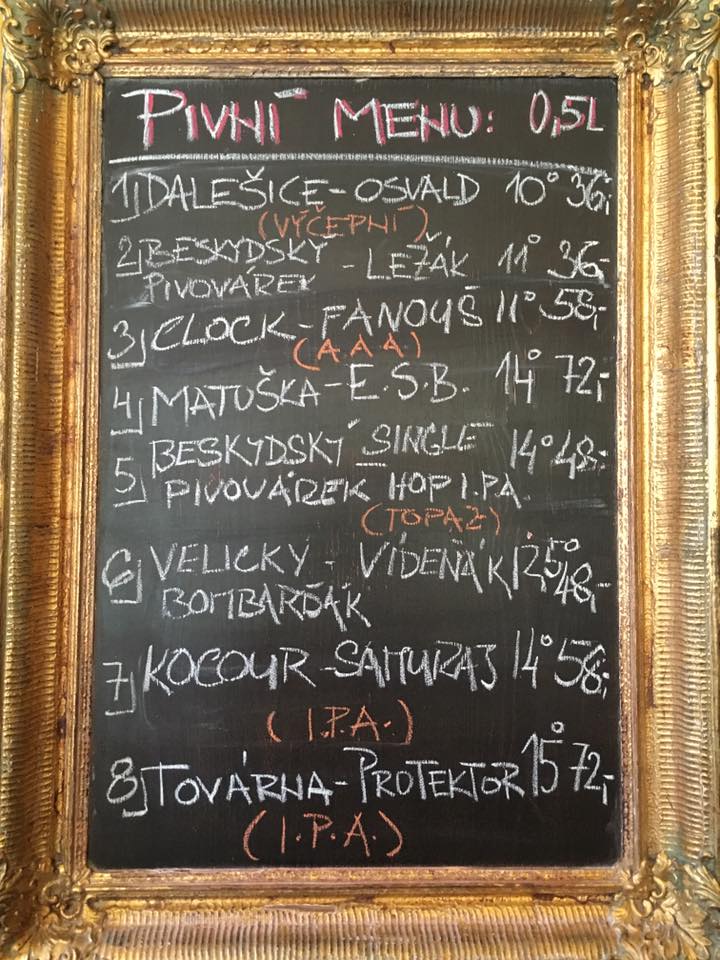 PIVNÍ MENU: 0,5L
1) DALEŠICE - OSVALD 10° 36,-
(VÝČEPNÍ)
2) BESKYDSKÝ
PIVOVÁREK - LEŽÁK 11° 36,-
3) CLOCK - FANOUŠ 11° 58,-
(A.A.A.)
4) MATUŠKA - E.S.B. 14° 72,-
5) BESKYDSKÝ SINGLE 14° 48,-
PIVOVÁREK HOP I.PA.
(TOPAZ)
6) VELICKÝ - VÍDEŇÁK 12,5° 48,-
BOMBARĎÁK
7) KOCOUR - SAMURAJ 14° 58,-
(I.P.A.)
8) TOVÁRNA - PROTEKTOR 15° 72,-
(I.P.A.)